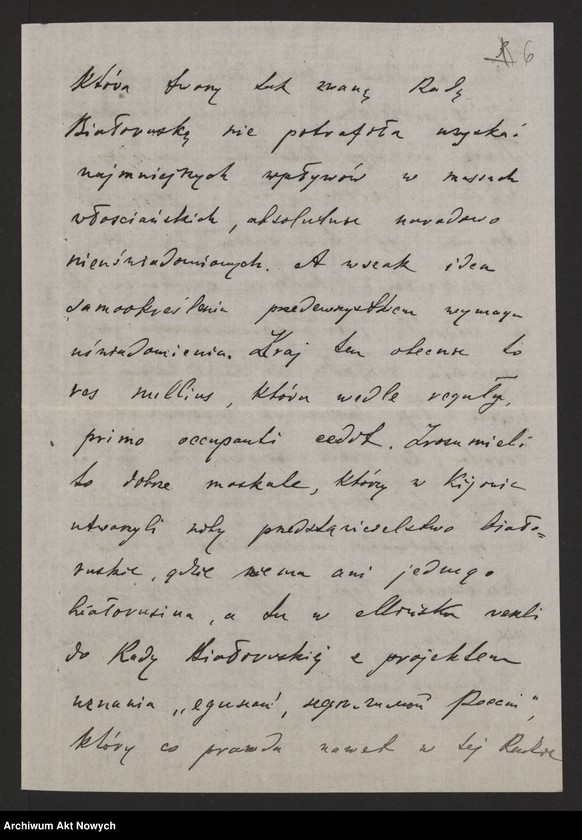 6
która tworzy tak zwaną Radę
Białoruską nie potrafiła uzyskać
najmniejszych wpływów w masach
włościańskich, absolutnie narodowo
nieuświadomionych. A wszak idea
samookreślenia przedewszystkiem wymaga
uświadomienia. Kraj ten obecnie to
res nullius, która wedle reguły,
primo occupanti cedit. Zrozumieli
to dobrze moskale, którzy w Kijowie
utworzyli niby przedstawicielstwo biało=
ruskie, gdzie niema ani jednego
białorusina, a tu w Mińsku weszli
do Rady Białoruskiej z projektem
uznania „единой, Россіи",
który co prawda nawet w tej Radzie
Archiwum Akt Nowych